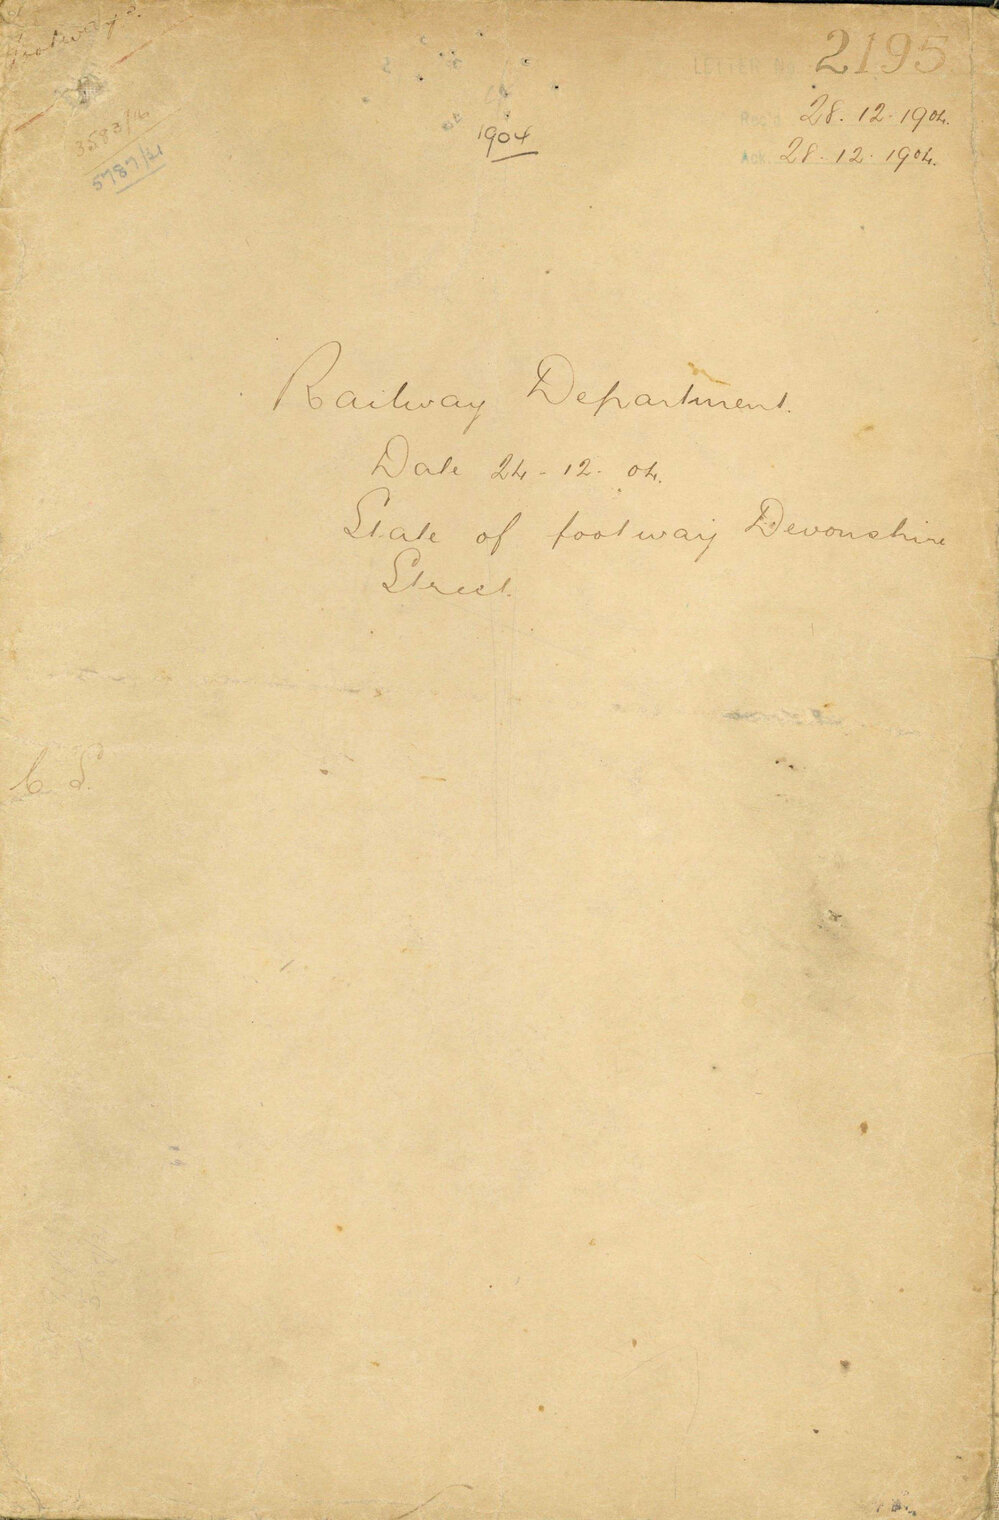 Footways.
LETTER No 2195
3583/16
5787/21
1904
Rec'd 28.12.1904.
Ack. 28.12.1904.
Railway Department.
Date 24-12-04.
State of footway Devonshire
Street.
C. S.